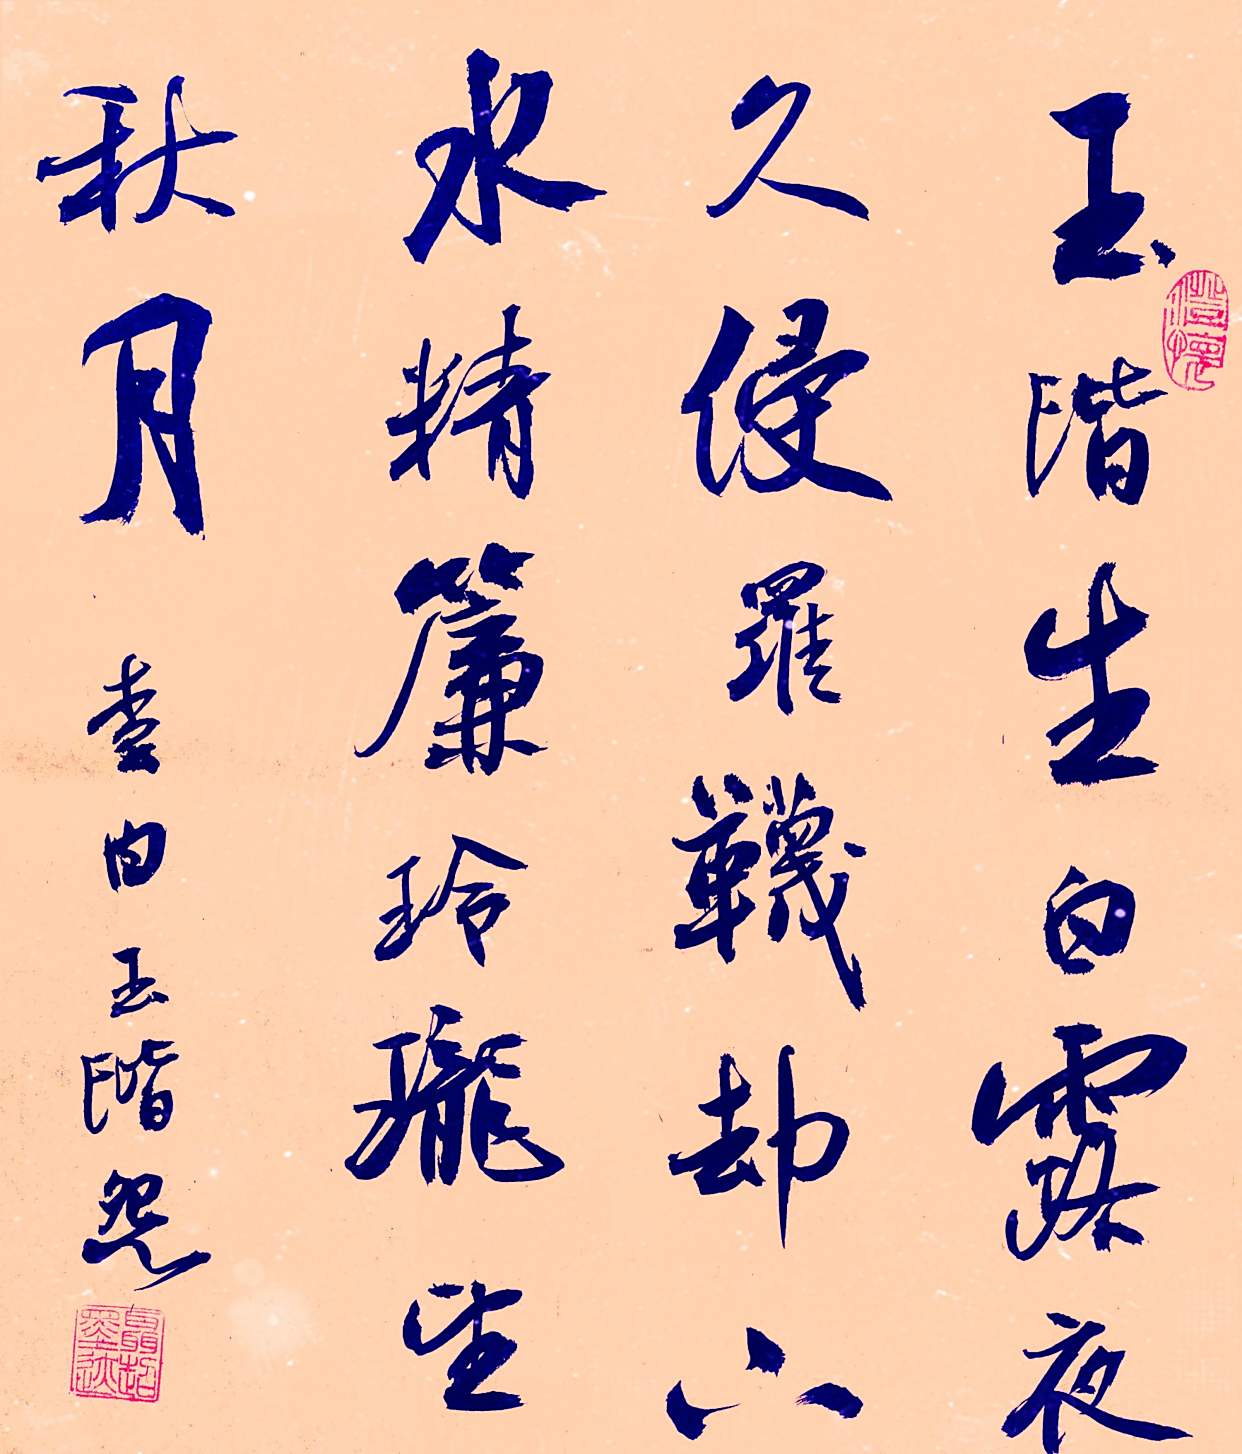 玉階生白露夜
久侵羅韈却下
水精簾玲瓏望
秋月
李白玉階怨
澄懷